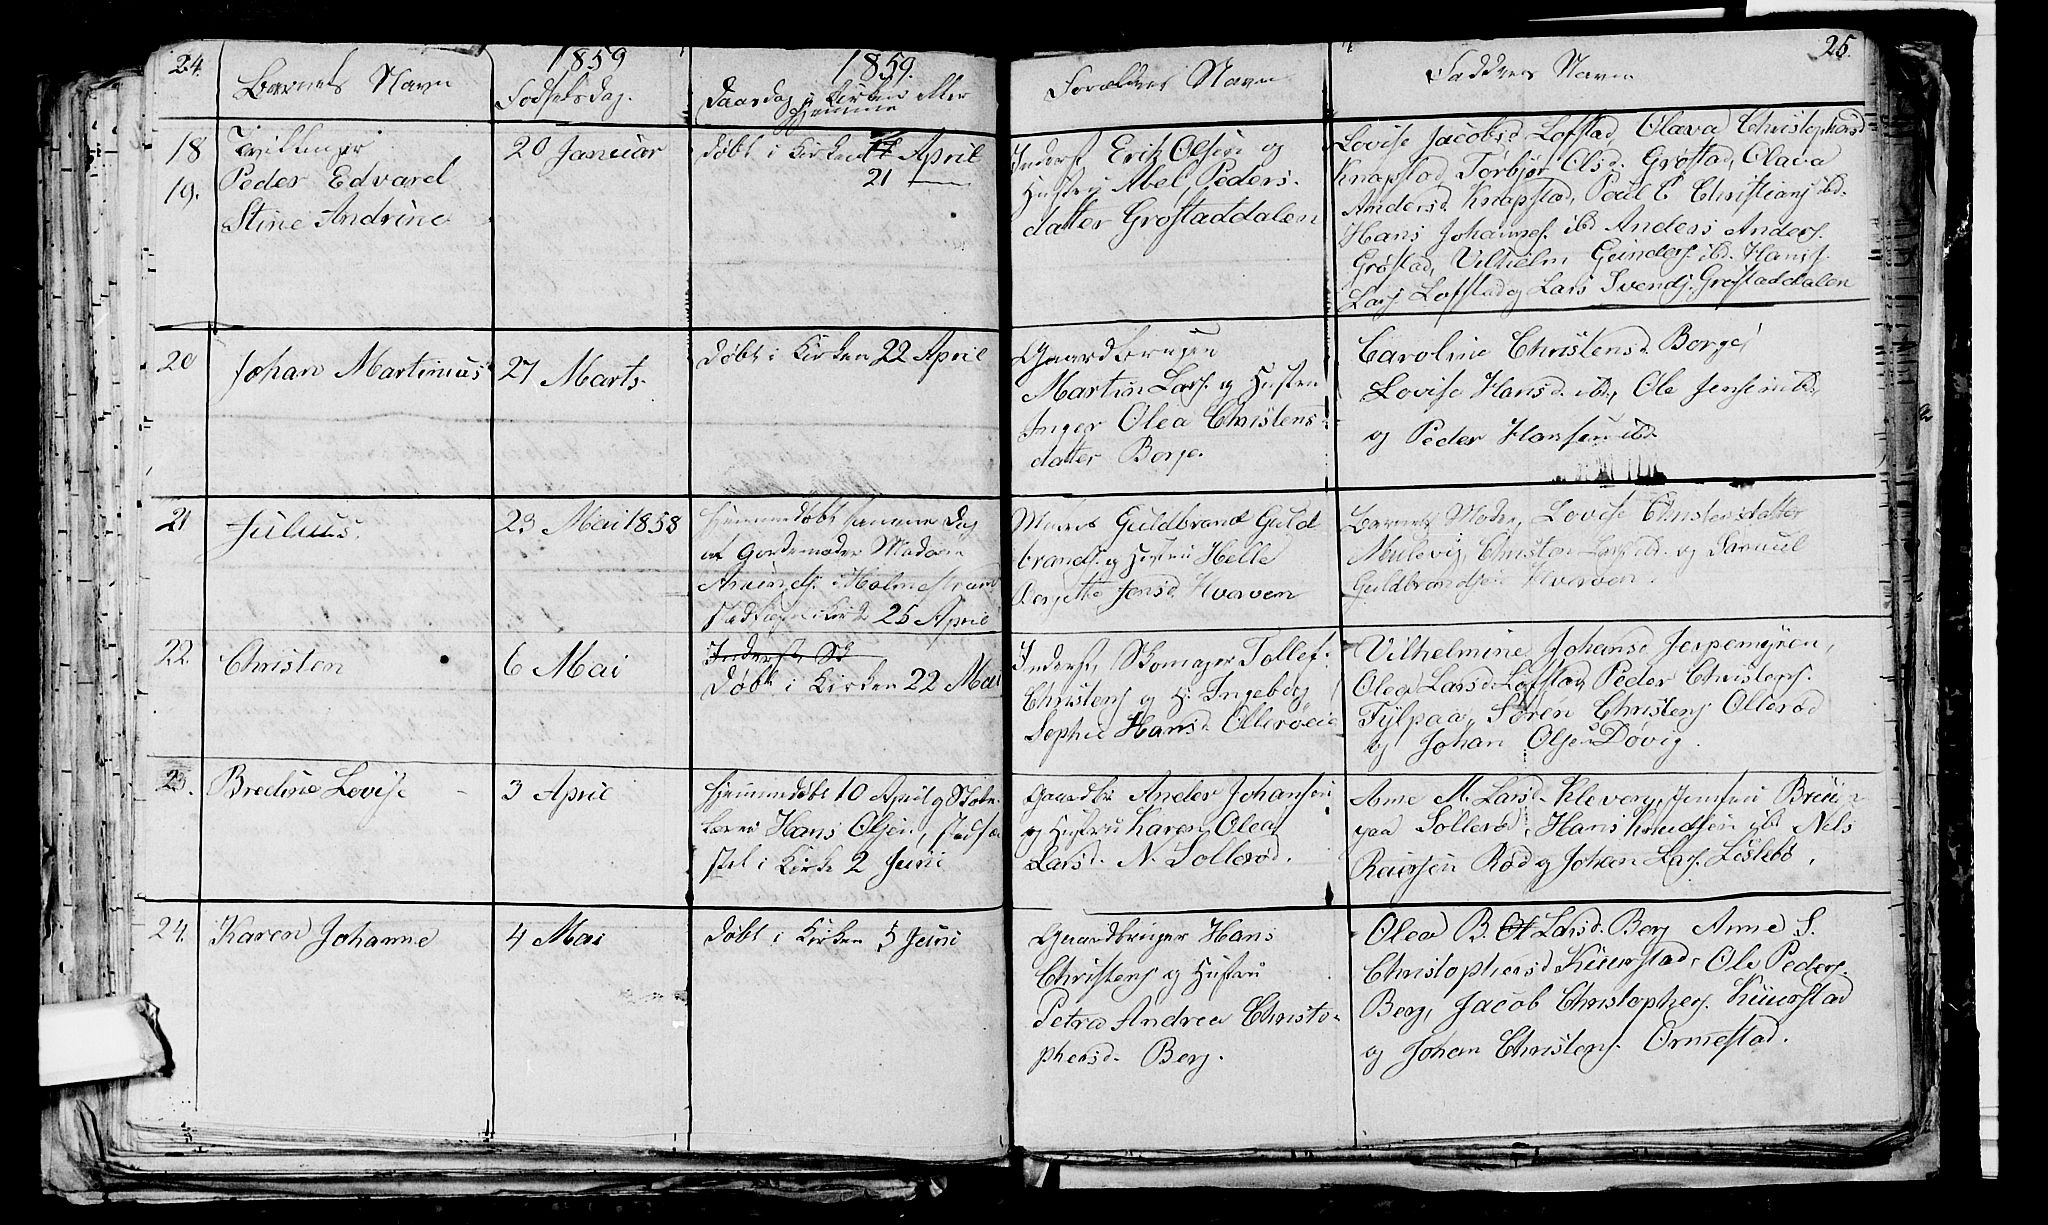 24.
1859
1859.
25.
Barnets Navn
Fødselsdag.
Daasdag i Kirken eller
Hjemme
Forældres Navn
Faddres Navn
18
19.
Tvillinger
Peder Edvard
Stine Andrine
20 Januar
døbt i Kirken April
21
Inderst Erik Olsen og
Hustru Abel Peders-
datter Grøstaddalen
Lovise Jacobsd. Løfstad, Olava Christophersd
Knapstad, Torbjør Olsd. Grøstad, Olava
Andersd Knapstad, Poul C Christians ibd.
Hans Johannes. ibd Anders Anders.
Grøstad, Vilhelm Gunders. ibd. Hans
Lars. Løfstad og Lars Svends. Grøstaddalen
20
Johan Martinius
27 Marts
døbt i Kirken 22 April
Gaardbruger
Martin Lars. og Hustru
Inger Olea Christens
datter Borge.
Caroline Christensd. Borge,
Lovise Hansd. ibd., Ole Jensen ibd.,
og Peder Hansen ibd.
21
Julius.
23 Mai 1858
Hjemmedøbt samme Dag
af Gordemoder Madam
Amunds. i Holmestrand
Stadfæst i Kirke 25 April
Guldbrand Guld
brands. og Hustru Helle
Jensd. Hvaven
Barnets Moder, Lovise Christensdatter
Mulevig, Christen Lars. ibd. og Samuel
Guldbrandsen Hvaven.
22
Christen
6 Mai
Inderst Sk
Døbt i Kirken 22 Mai
Inderst, Skomager Tollef
Christens. og H. Ingeborg
Sophie Hansd. Ollerøeie
Vilhelmine Johansd Jerpemyren,
Olea Larsd. Løfstad, Peder Christens.
Fylpaa, Søren Christens. Ollerød
og Johan Olsen Døvig.
23.
Bredine Lovise
3 April
Hjemmedøbt 10 April af Skole-
lærer Hans Olsen, stadfæ
stet i Kirke 2 Juni
Gaardbr Anders Johansen
og Hustru Karen Olea
Larsd. N. Sollerød.
Anne M. Larsd. Kleverg, Jomfru Bruun
paa Sollerød, Hans Knudsen ibd Nels
Rød og Johan Lars. Løslebø.
24.
Karen Johanne
4 Mai
døbt i Kirken 5 Juni
Gaardbruger Hans
Christens. og Hustru
Petra Andrea Christo-
phersd. Berg.
Olea B. Ol Larsd. Berg Anne S.
Christophersd Kuurstad, Ole Peders.
Berg, Jacob Christophers. Kuurstad
og Johan Christens. Ormestad.